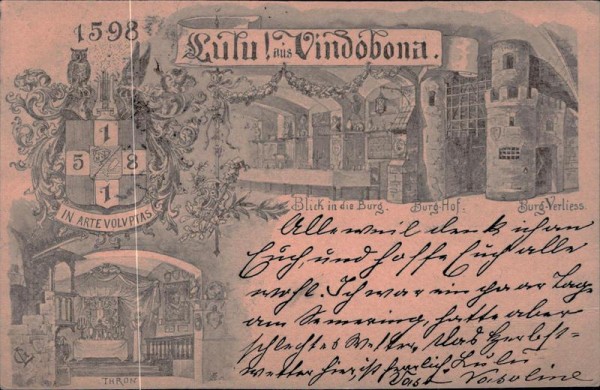 1598
Lulu! aus Vindobona.
1
5 8
1
IN ARTE VOLVPTAS
Blick in die Burg.
Burg-Hof.
Burg-Verliess.
THRON
Alle weil denk ich an
Euch, und hoffe Euch alle
wohl. Ich war ein paar Tage
am Semering, hatte aber
schlechtes Wetter, das Herbst-
wetter hier, ist herrlich. Lulu
Vaseline